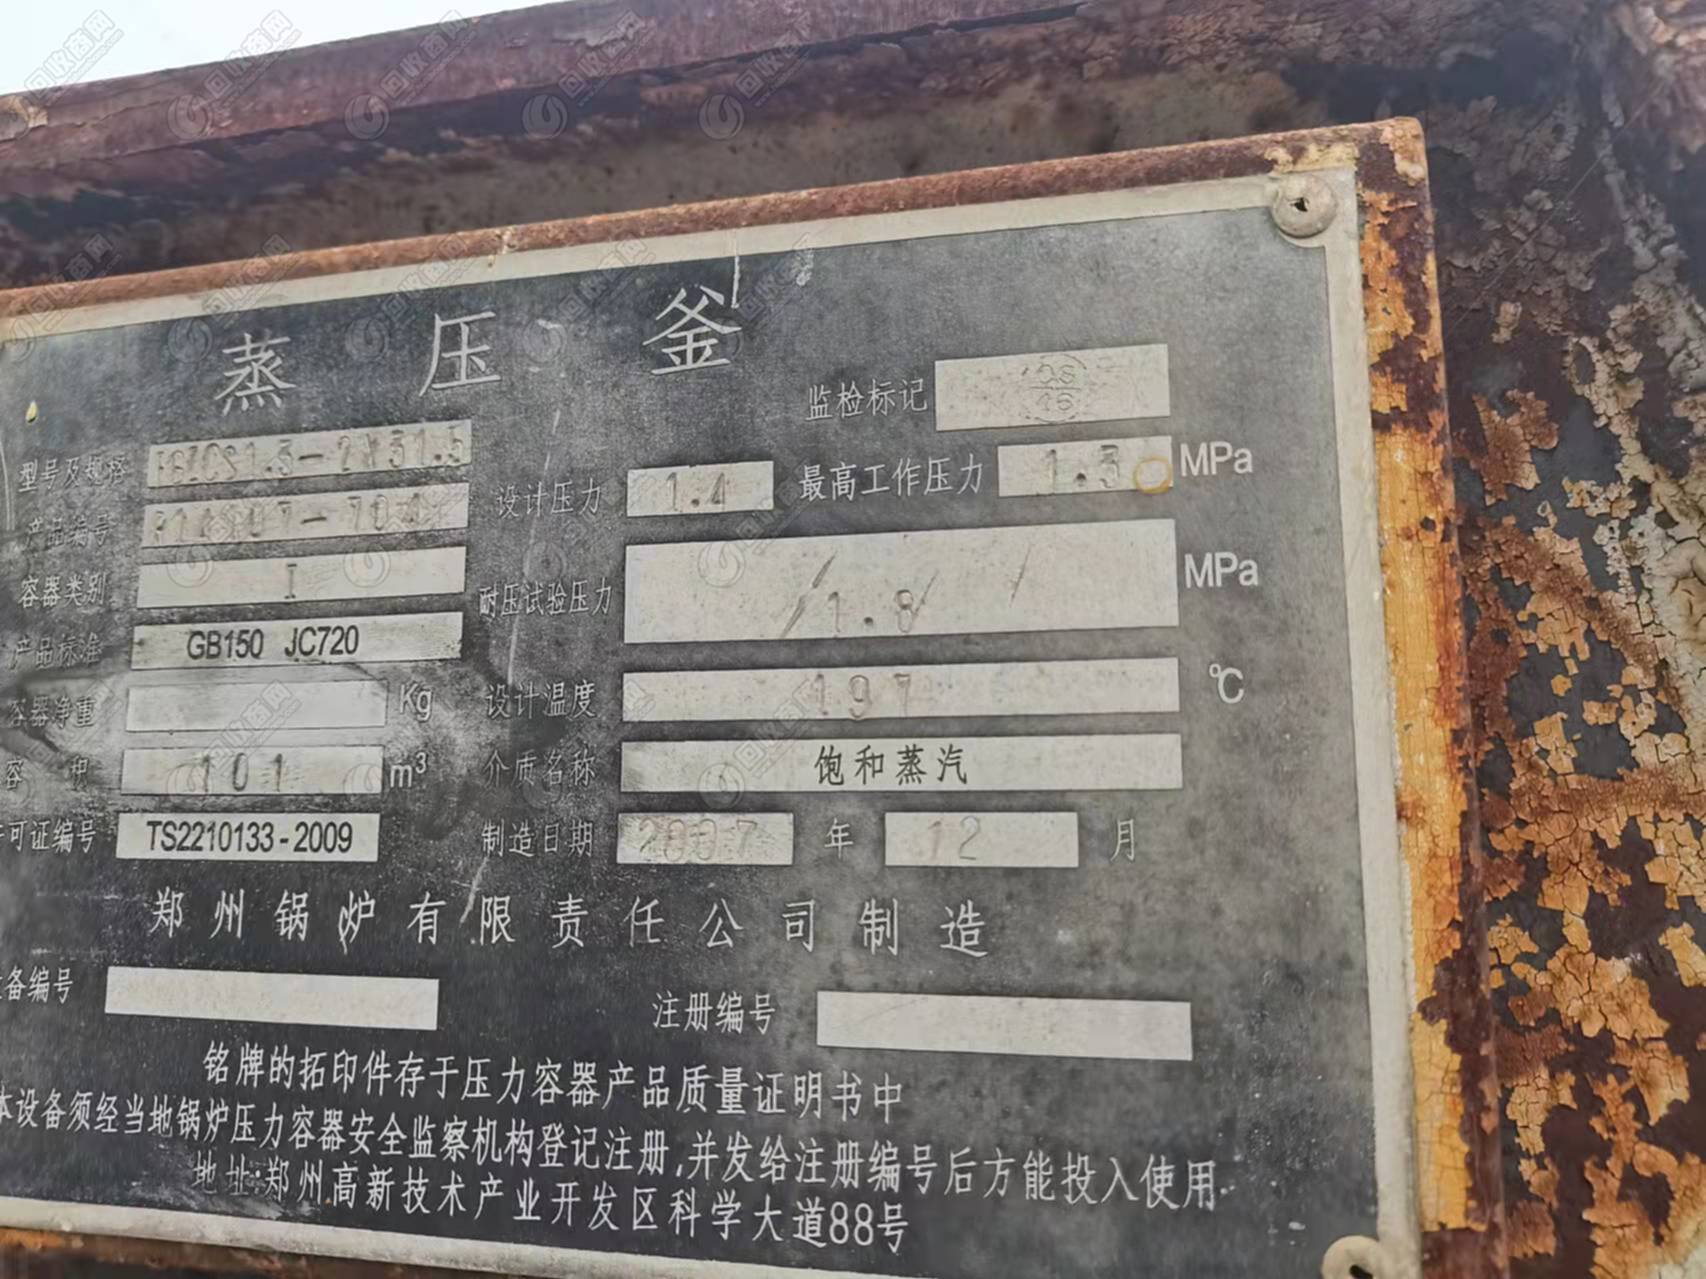 蒸压釜
监检标记
型号及规格
设计压力 1.4 最高工作压力 1.3 MPa
产品编号
容器类别 I
耐压试验压力 1.8 MPa
产品标准 GB150 JC720
容器净重 Kg 设计温度 197 ℃
容积 101 m³ 介质名称 饱和蒸汽
可证编号 TS2210133-2009 制造日期 2007 年 12 月
郑州锅炉有限责任公司制造
备编号 注册编号
铭牌的拓印件存于压力容器产品质量证明书中
本设备须经当地锅炉压力容器安全监察机构登记注册,并发给注册编号后方能投入使用
地址:郑州高新技术产业开发区科学大道88号